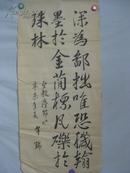 深為鄙拙唯恐穢翰
墨於金簡標瓦礫於
珠林
聖教序